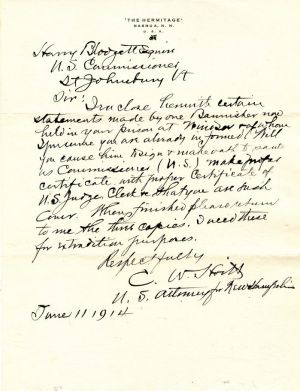 "THE HERMITAGE"
NASHUA, N. H.
U. S. A.
Harry Blodgett Esquire
U. S. Commissioner
St Johnsbury Vt
Sir:
I inclose herewith certain
statements made by one Bannister now
held in your prison at Windsor of whom
I presume you are already informed. Will
you cause him to sign & make oath to same
as Commissioner (U.S.) make proper
certificate with proper Certificate of
U.S. Judge Clerk that you are such
Comr. When finished please return
to me the three copies. I need these
for extradition purposes.
Respectfully
C. W. Hoitt
U. S. Attorney for New Hampshire
June 11 1914